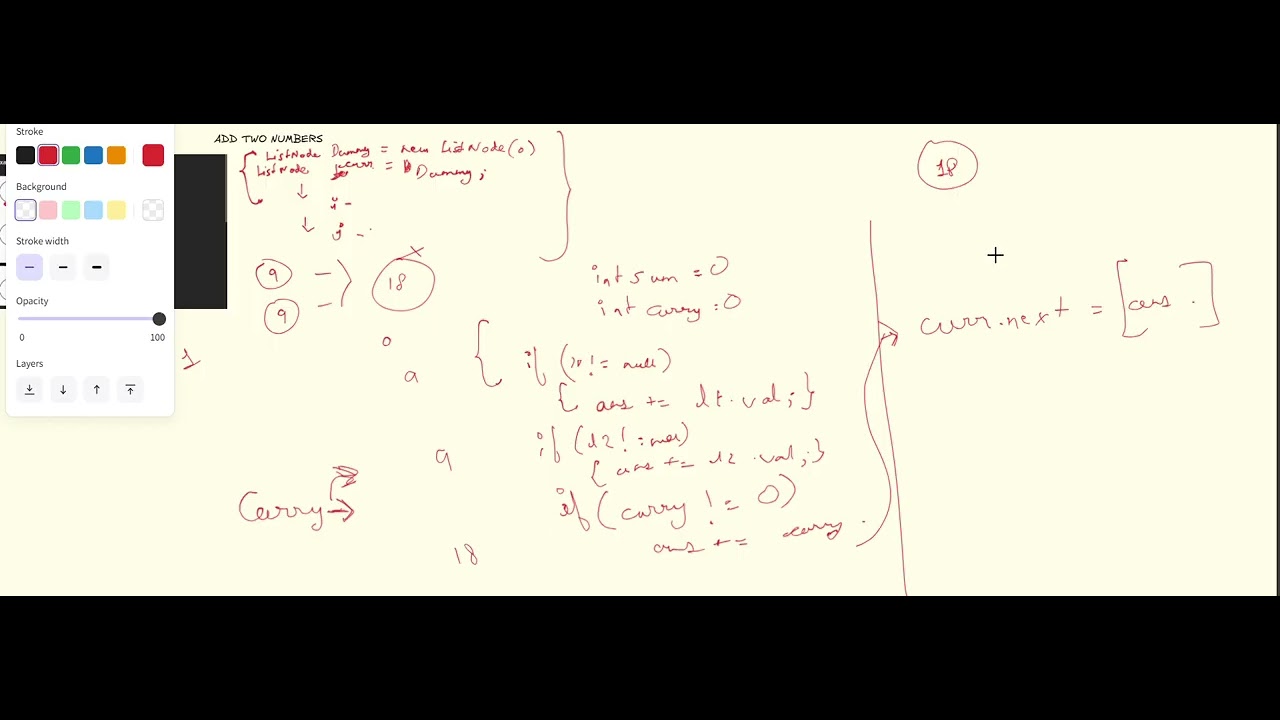 Stroke
Background
Stroke width
Opacity
0 100
Layers
ADD TWO NUMBERS
ListNode Dummy = new ListNode(0)
ListNode curr = Dummy;
i -
j -
9
9
18
0
9
9
18
1
Carry
int sum = 0
int carry = 0
if ( != null)
{ ans += l1.val; }
if (l2 != null)
{ ans += l2.val; }
if (carry != 0)
ans += carry.
18
curr.next = [ans .]